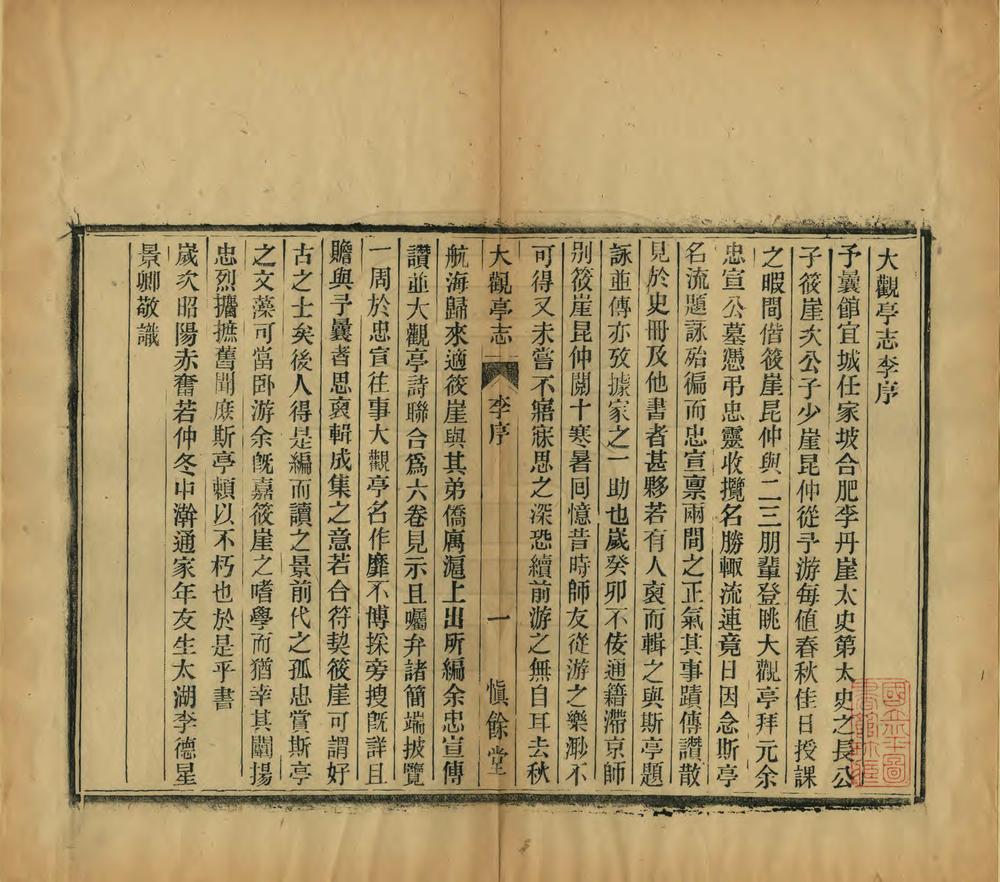 大觀亭志李序
予曩館宜城任家坡合肥李丹崖太史第太史之長公
子筱崖次公子少崖昆仲從予游每値春秋佳日授課
之暇間偕筱崖昆仲與二三朋輩登眺大觀亭拜元余
忠宣公墓憑弔忠靈收攬名勝輒流連竟日因念斯亭
名流題詠殆徧而忠宣稟兩間之正氣其事蹟傳讚散
見於史冊及他書者甚夥若有人裒而輯之與斯亭題
詠並傳亦攷據家之一助也嵗癸卯不佞通籍滯京師
別筱崖昆仲閱十寒暑囘憶昔時師友從游之樂渺不
可得又未嘗不寤寐思之深恐續前游之無自耳去秋
大觀亭志 李序 一 愼餘堂
航海歸來適筱崖與其弟僑寓滬上出所編余忠宣傳
讚並大觀亭詩聯合爲六卷見示且囑弁諸簡端披覽
一周於忠宣往事大觀亭名作靡不博採旁搜旣詳且
贍與予曩者思裒輯成集之意若合符契筱崖可謂好
古之士矣後人得是編而讀之景前代之孤忠賞斯亭
之文藻可當卧游余旣嘉筱崖之嗜學而猶幸其闡揚
忠烈攟摭舊聞庶斯亭頼以不朽也於是乎書
嵗次昭陽赤奮若仲冬中澣通家年友生太湖李德星
景卿敬識